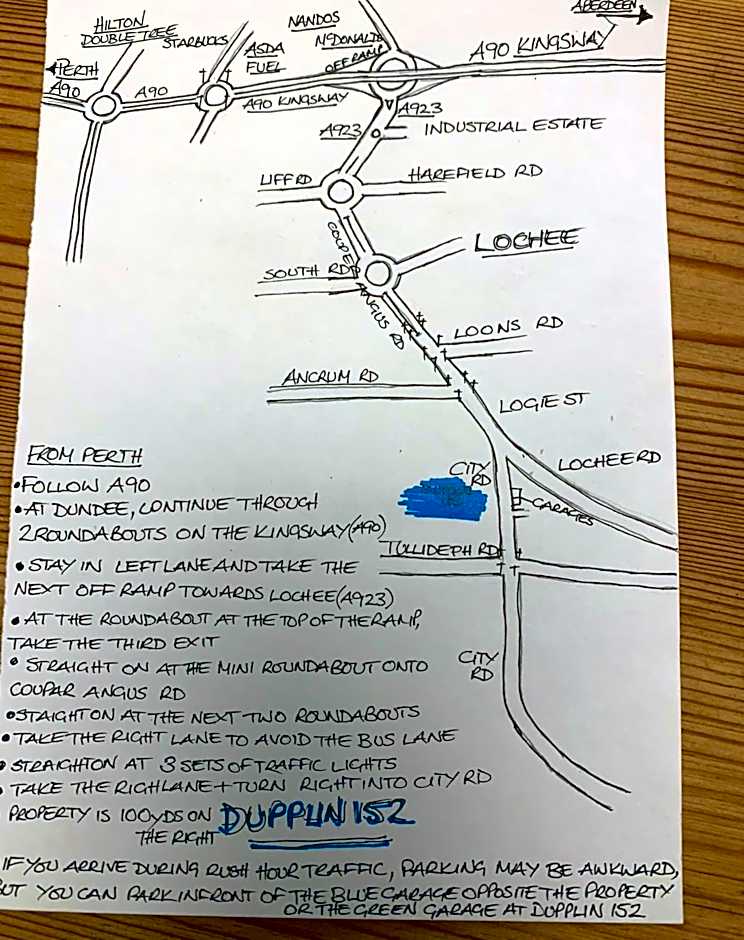 ABERDEEN
HILTON
DOUBLE TREE
NANDOS
STARBUCKS
ASDA
FUEL
McDONALDS
OFF RAMP
A90 KINGSWAY
PERTH
A90
A90
A90 KINGSWAY
A923
A923
INDUSTRIAL ESTATE
LIFF RD
HAREFIELD RD
COUPER
ANGUS RD
LOCHEE
SOUTH RD
LOONS RD
ANCRUM RD
LOGIE ST
CITY
RD
LOCHEE RD
GARAGES
TULLIDEPH RD
CITY
RD
FROM PERTH
•FOLLOW A90
•AT DUNDEE, CONTINUE THROUGH
2 ROUNDABOUTS ON THE KINGSWAY (A90)
• STAY IN LEFT LANE AND TAKE THE
NEXT OFF RAMP TOWARDS LOCHEE (A923)
• AT THE ROUNDABOUT AT THE TOP OF THE RAMP,
TAKE THE THIRD EXIT
• STRAIGHT ON AT THE MINI ROUNDABOUT ONTO
COUPAR ANGUS RD
•STAIGHT ON AT THE NEXT TWO ROUNDABOUTS
• TAKE THE RIGHT LANE TO AVOID THE BUS LANE
• STRAIGHT ON AT 3 SETS OF TRAFFIC LIGHTS
• TAKE THE RIGH LANE + TURN RIGHT INTO CITY RD
PROPERTY IS 100yDS ON
THE RIGHT
DUPPLIN 152
IF YOU ARRIVE DURING RUSH HOUR TRAFFIC, PARKING MAY BE AWKWARD,
BUT YOU CAN PARK INFRONT OF THE BLUE GARAGE OPPOSITE THE PROPERTY
OR THE GREEN GARAGE AT DUPPLIN 152